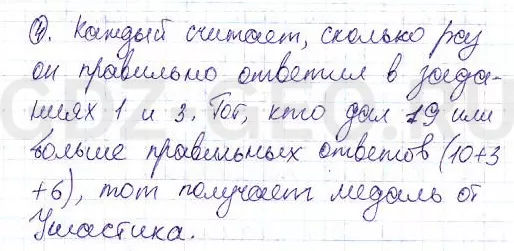 ④. Каждый считает, сколько раз
он правильно ответил в зада-
ниях 1 и 3. Тот, кто дал 19 или
больше правильных ответов (10+3
+6), тот получает медаль от
Ушастика.